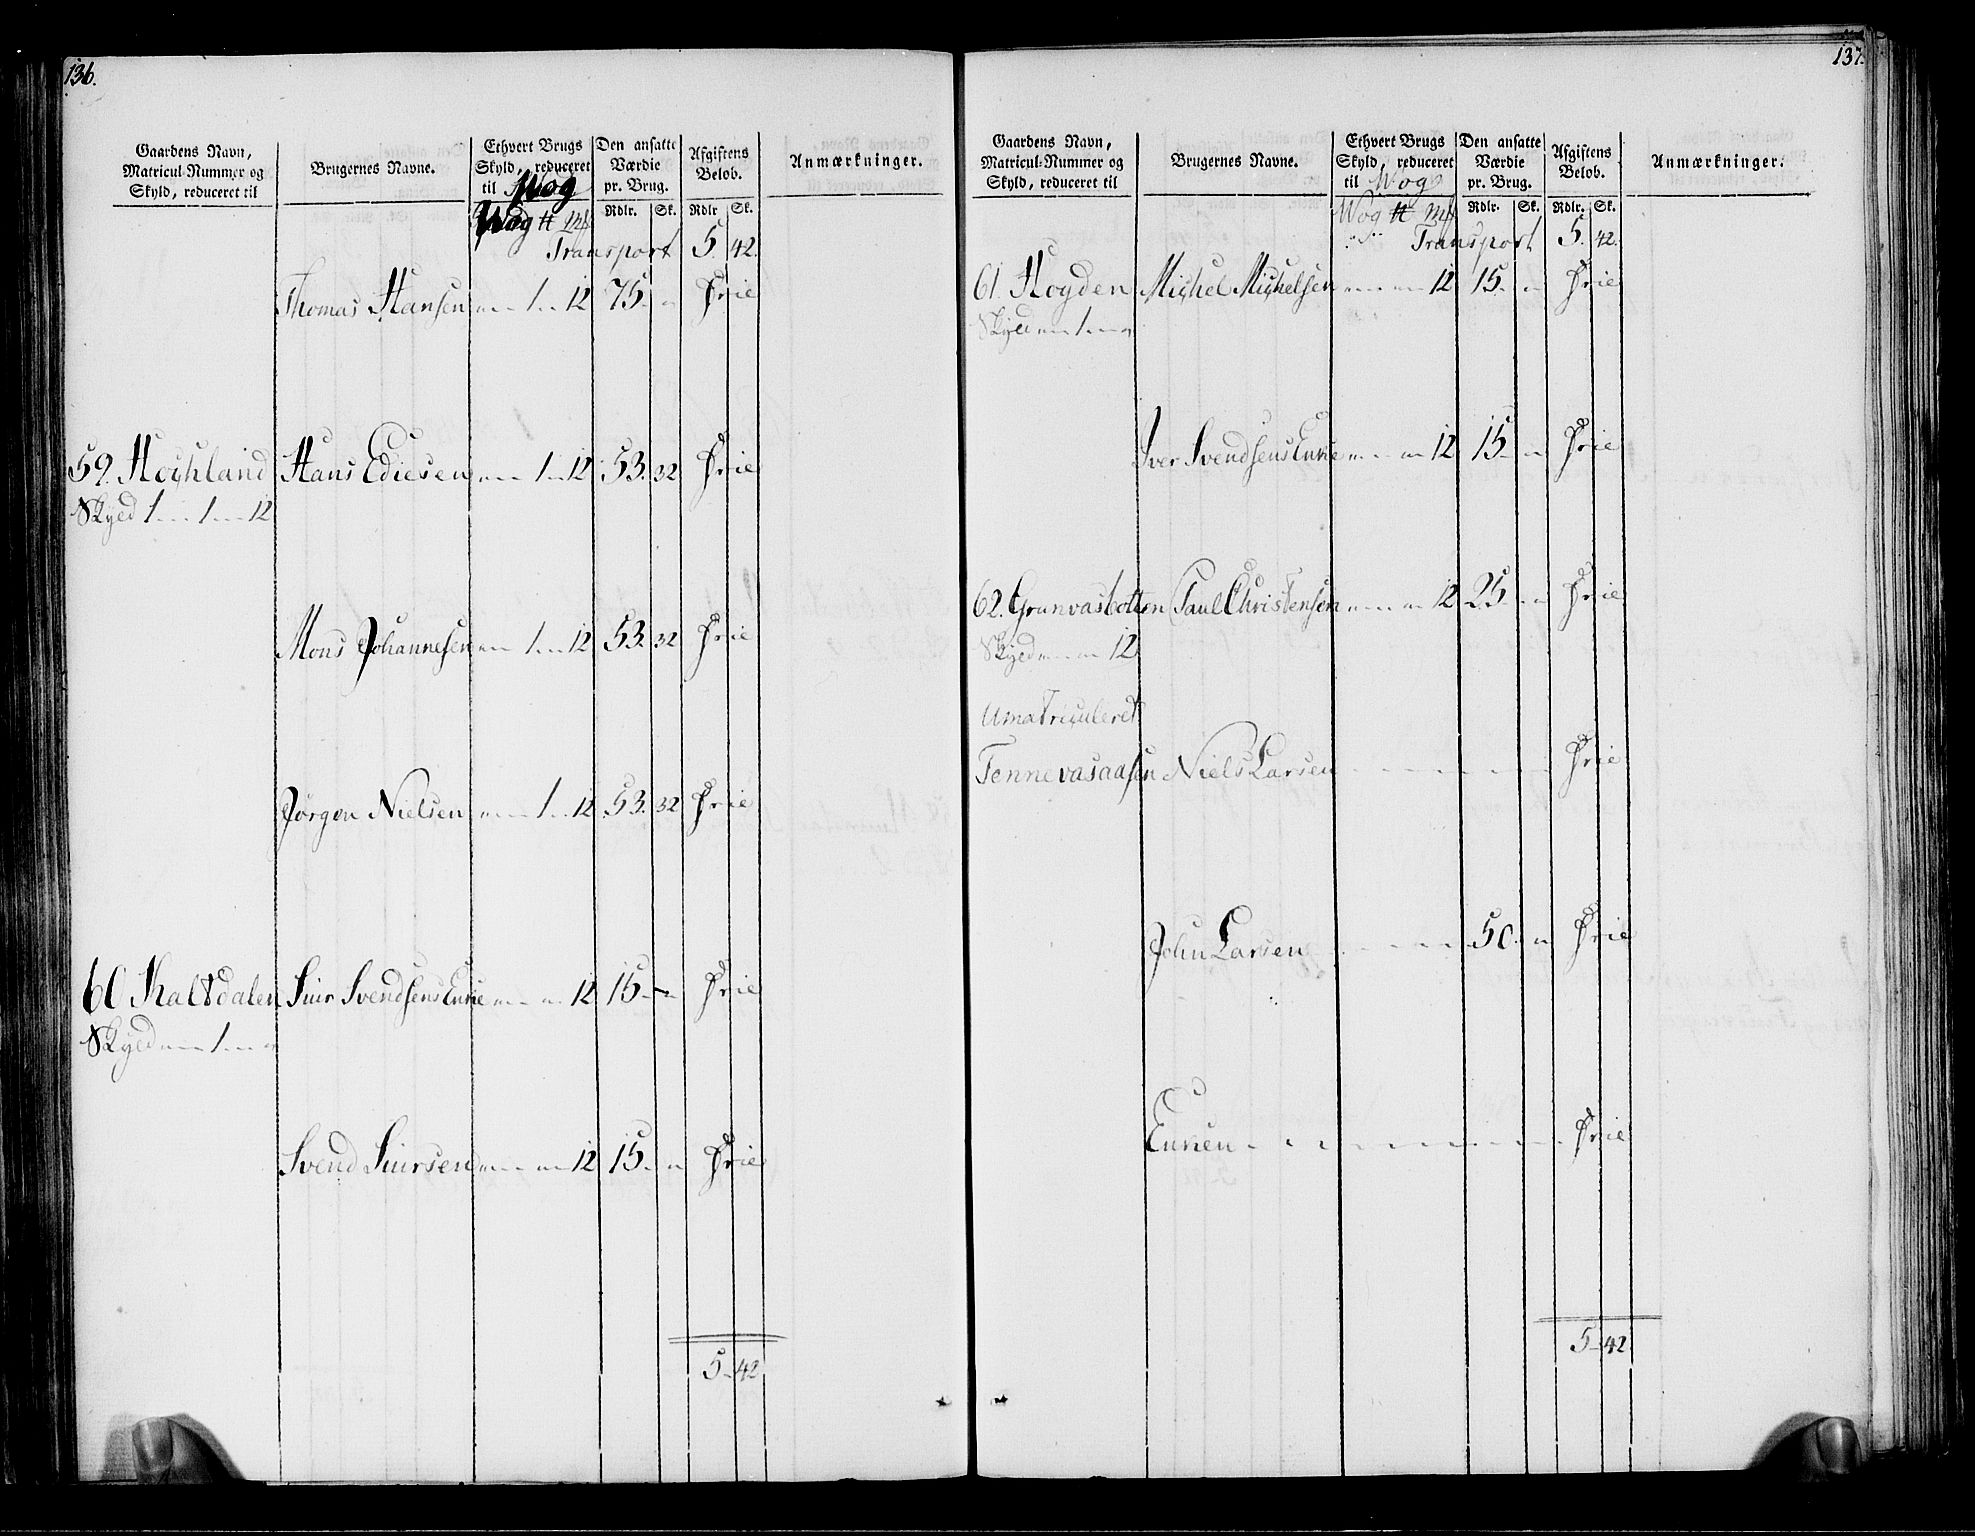 136.
Gaardens Navn, Matricul-Nummer og Skyld, reduceret til
Brugernes Navne.
Ethvert Brugs Skyld, reduceret til Wog
Den ansatte Værdie pr. Brug.
Afgiftens Belob.
Anmærkninger.
Wog Rdlr. Sk. Rdlr Sk.
Transport 5. 42.
Thomas Hansen 1 12 75 Frie
59. Hochland Hans Ediesen 1 12 53. 32 Frie
Skyld 1 1 12
Mons Johannesen 1 12 53. 32 Frie
Jørgen Nielsen 1 12 53. 32 Frie
60 Kaltdalen Siur Svendsens Enke 12 15 Frie
Skyld 1
Svend Siursen 12 15 Frie
5 42
137.
Gaardens Navn, Matricul-Nummer og Skyld, reduceret til
Brugernes Navne.
Ethvert Brugs Skyld, reduceret til Wog
Den ansatte Værdie pr. Brug.
Afgiftens Belob.
Anmærkninger.
Wog Rdlr. Sk. Rdlr. Sk.
Transport 5. 42.
61. Hogden Michel Michelsen 12 15 Frie
Skyld 1
Iver Svendsens Enke 12 15 Frie
62. Grunvasbotten Paul Christensen 12 25 Frie
Skyld 12
Umatriculeret
Tennevasaasen Niels Larsen Frie
John Larsen 50 Frie
Enken Frie
5 42